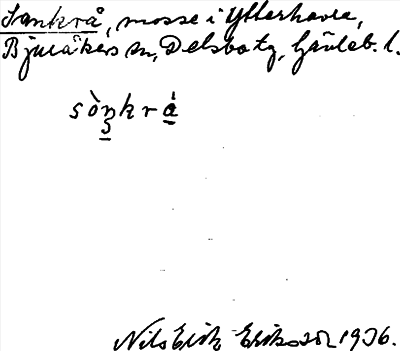 Sankrå, mosse i Ytterhavre,
Bjuråkers sn, Delsbo tg, Gävleb. l.
sò̱nkrá̱
Nils Erik Eriksson 1936.